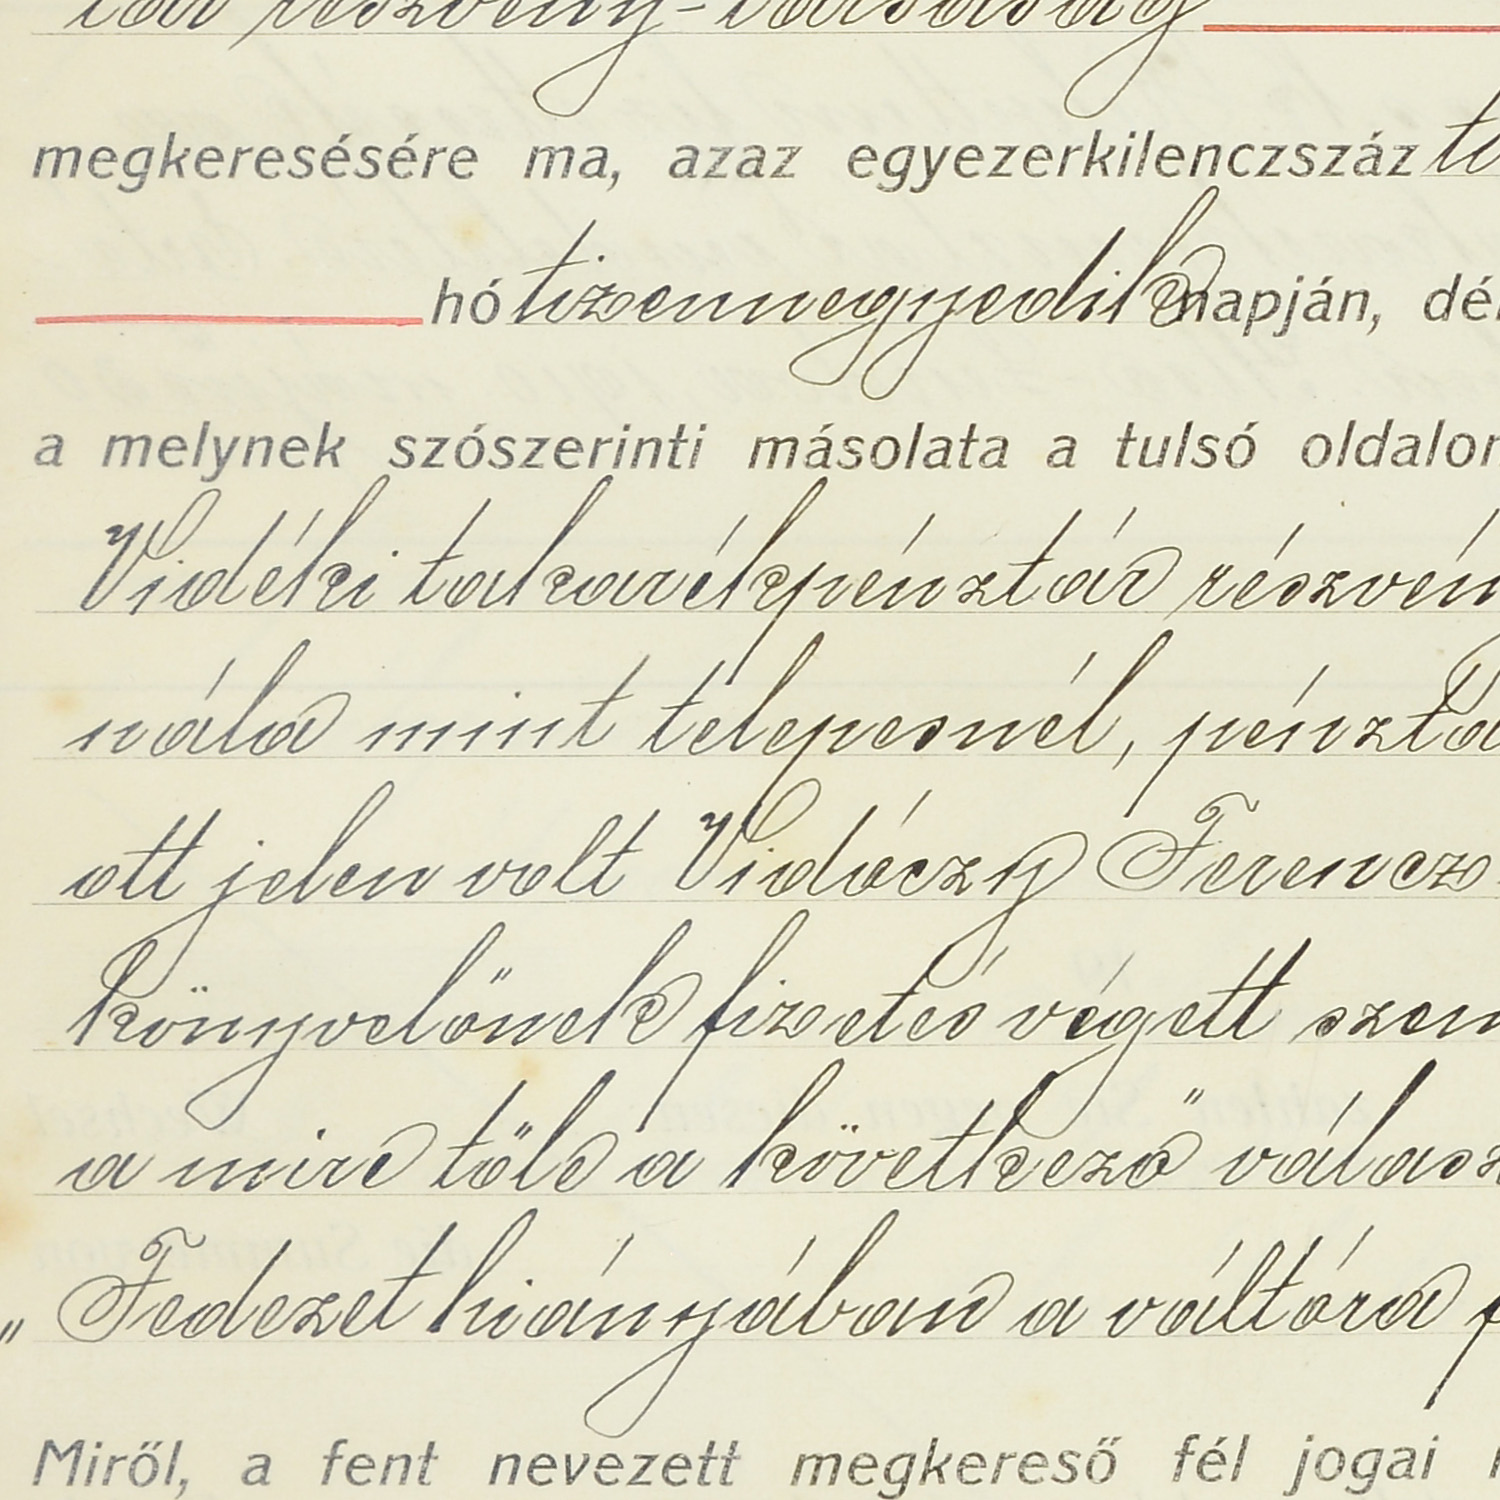 tár részvény-társaság
megkeresésére ma, azaz egyezerkilenczszáz
hó tizennegyedik napján,
a melynek szószerinti másolata a tulsó oldalon
Vidéki takarékpénztár részvén
nála mint telepesnél, pénztá
ott jelen volt Vidóczy Ferencz
könyvelőnek fizetés végett szem
a mire tőle a következő válasz
„Fedezet hiányában a váltóra f
Miről, a fent nevezett megkereső fél jogai